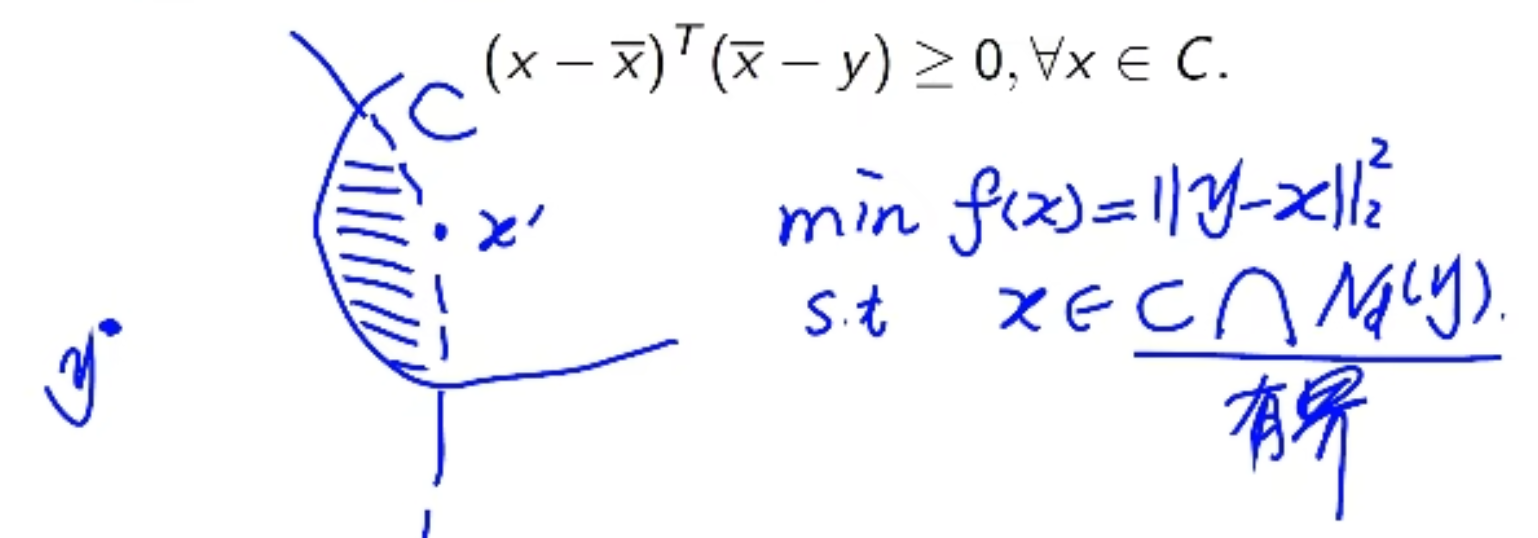 (x − x̅)ᵀ(x̅ − y) ≥ 0, ∀x ∈ C.
C
min f(x) = ||y−x||₂²
x'
s.t x ∈ C ∩ N_d(y).
y
有界